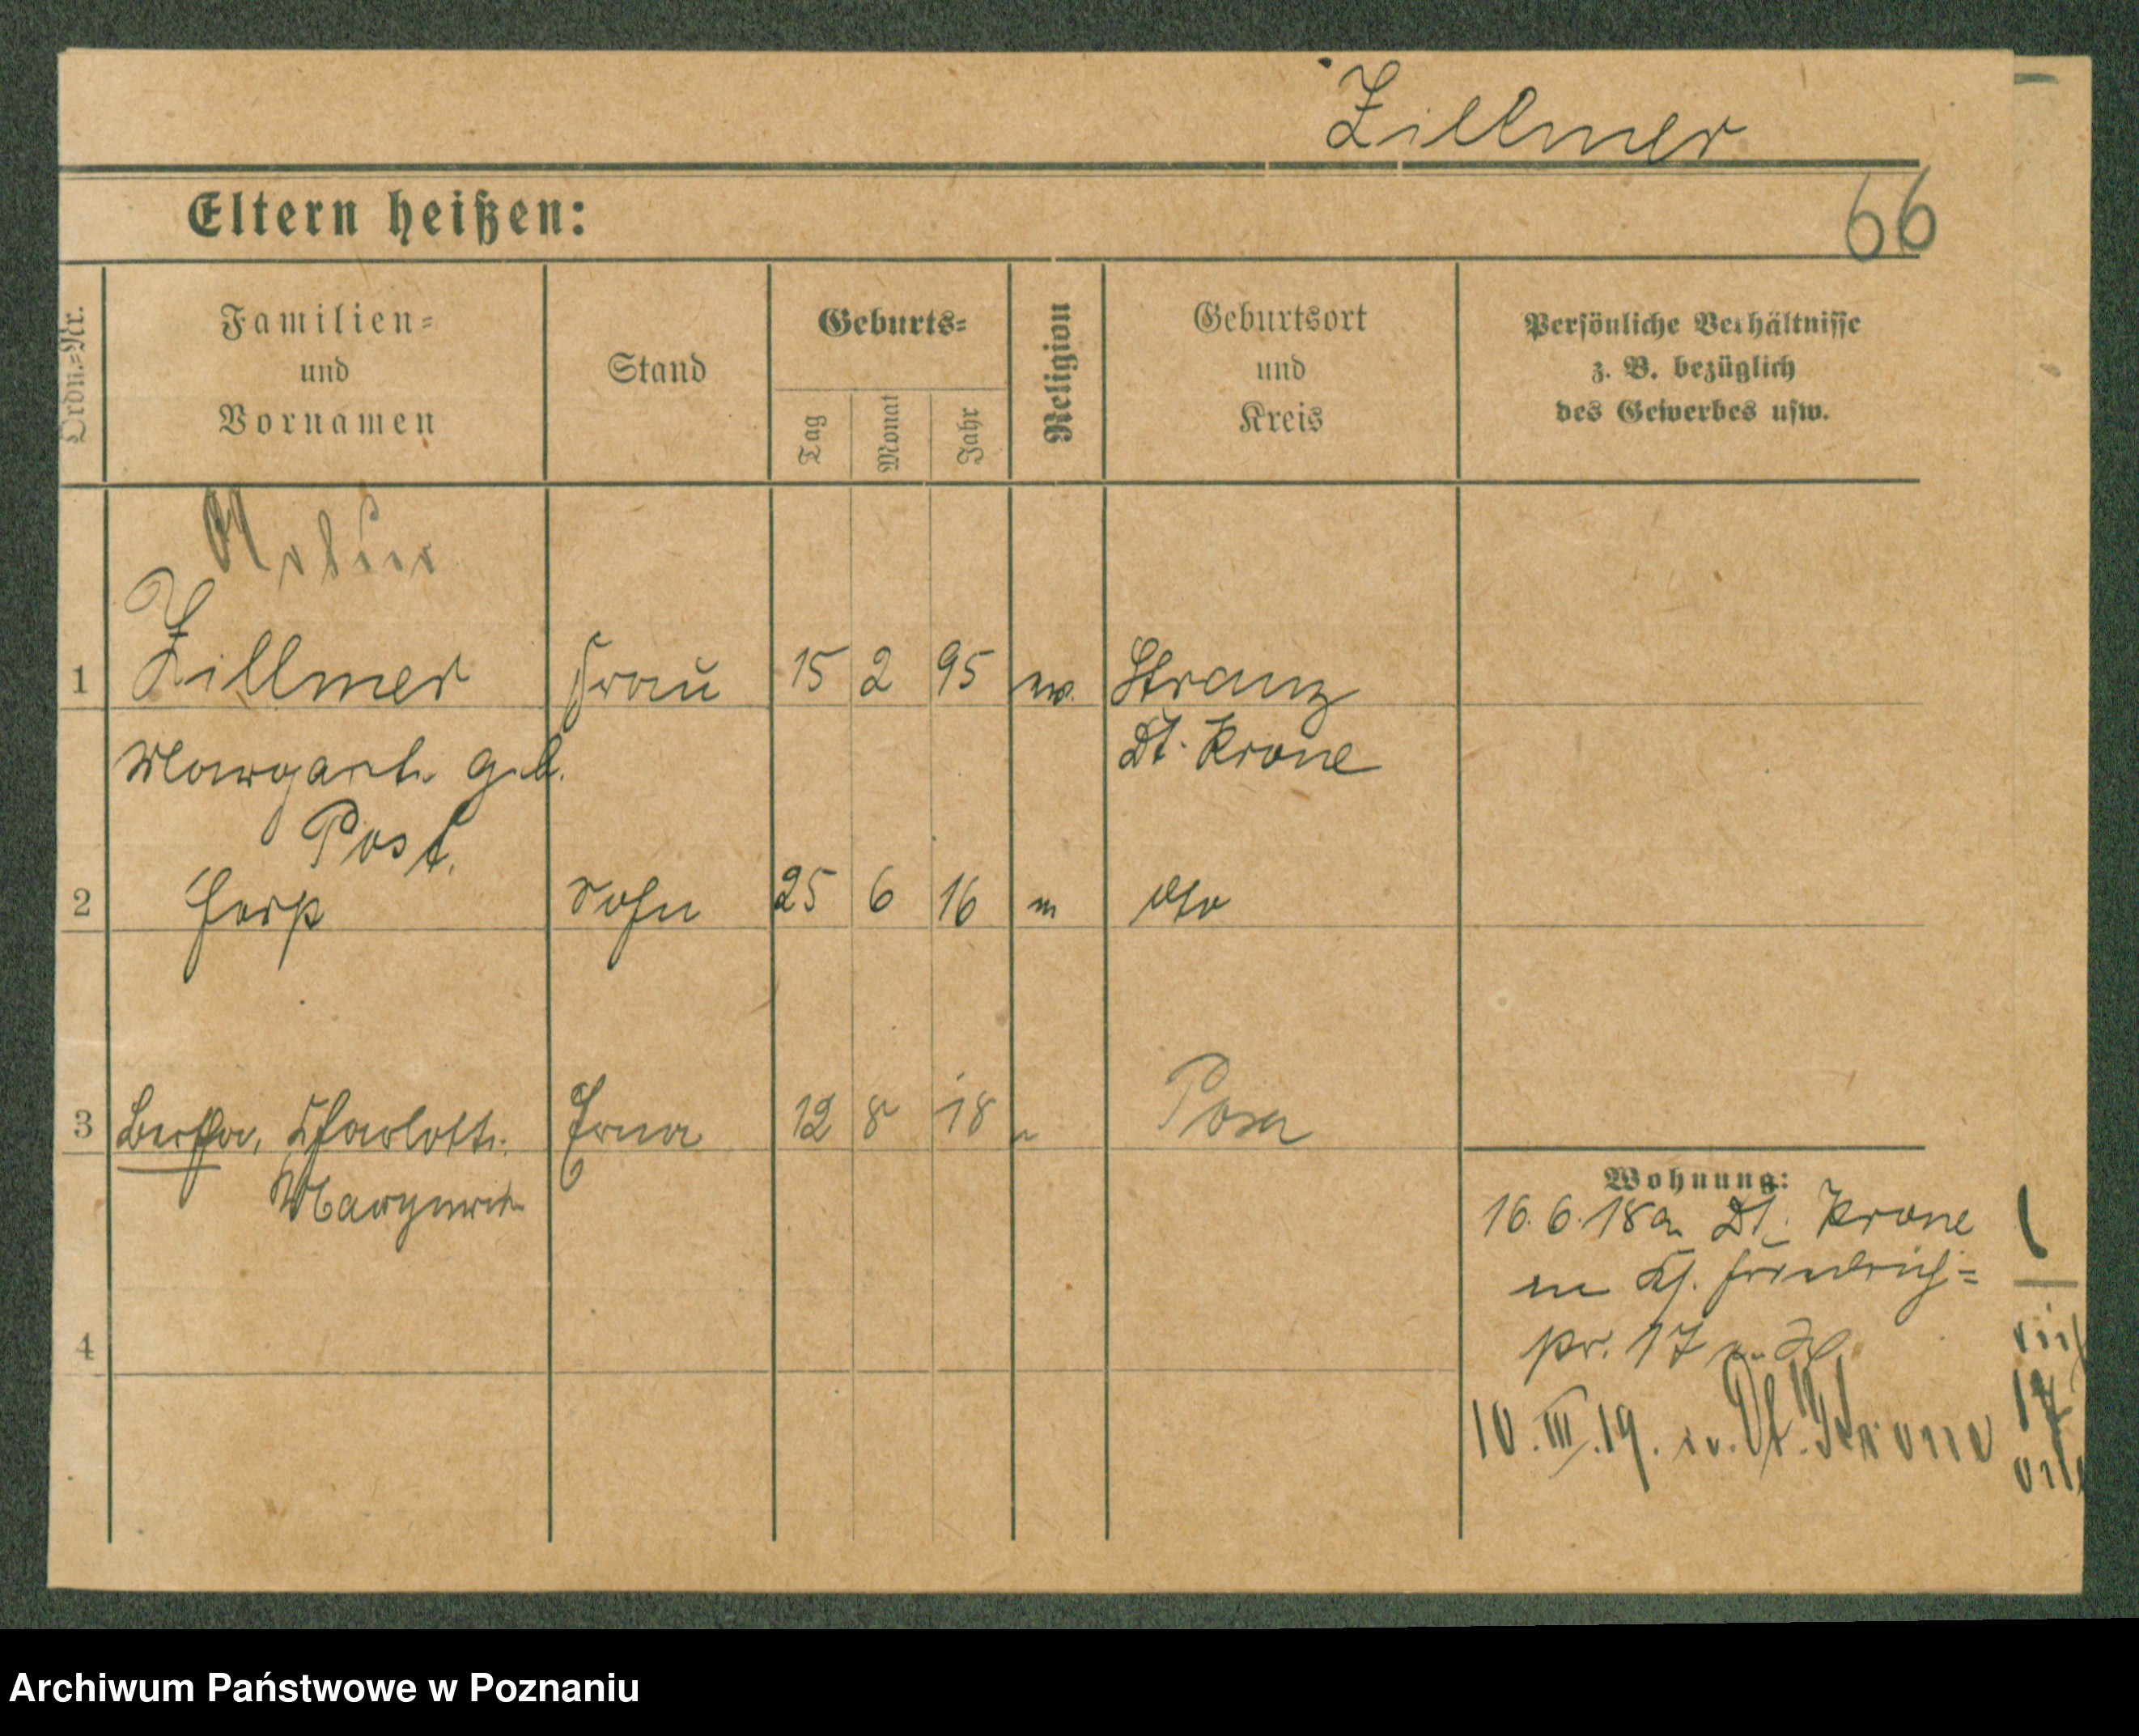 Zillmer
Eltern heißen:
66
Ordn.=Nr.
Familien=
und
Vornamen
Stand
Geburts=
Tag
Monat
Jahr
Religion
Geburtsort
und
Kreis
Persönliche Verhältnisse
z. B. bezüglich
des Gewerbes usw.
1 Zillmer Frau 15 2 95 ev. Stranz
Margarete geb. Dt. Krone
Post.
2 Sohn 25 6 16 dto
3 Bertha, Charlotte Erna 12 8 18 Posen
Margarete
Wohnung:
16. 6. 18 Dt. Krone
Friedrich=
pr. 17
10. III. 19. Dt. Krone
4
17
Archiwum Państwowe w Poznaniu